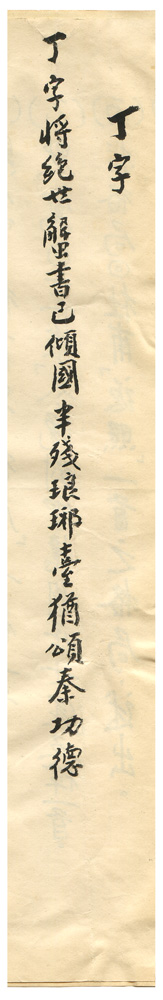 丁字
丁字將絕世蟹書已傾國半殘琅琊臺猶頌秦功德